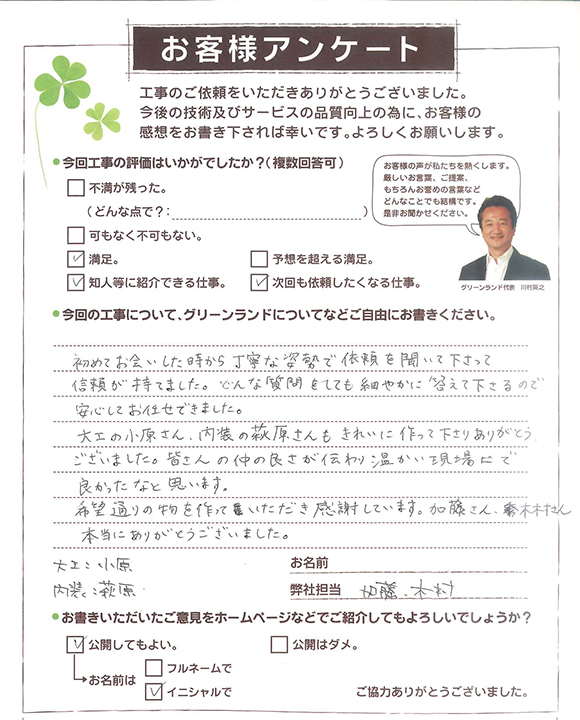 お客様アンケート
工事のご依頼をいただきありがとうございました。
今後の技術及びサービスの品質向上の為に、お客様の
感想をお書き下されば幸いです。よろしくお願いします。
●今回工事の評価はいかがでしたか？(複数回答可)
不満が残った。
（どんな点で？：　）
可もなく不可もない。
満足。
予想を超える満足。
知人等に紹介できる仕事。
次回も依頼したくなる仕事。
お客様の声が私たちを熱くします。
厳しいお言葉、ご提案、
もちろんお誉めの言葉など
どんなことでも結構です。
是非お聞かせください。
グリーンランド代表　川村英之
●今回の工事について、グリーンランドについてなどご自由にお書きください。
初めてお会いした時から丁寧な姿勢で依頼を聞いて下さって
信頼が持てました。どんな質問をしても細やかに答えて下さるので
安心してお任せできました。
大工の小原さん、内装の萩原さんもきれいに作って下さりありがとう
ございました。皆さんの仲の良さが伝わり温かい現場で
良かったなと思います。
希望通りの物を作っていただき感謝しています。加藤さん、木村さん
本当にありがとうございました。
大工：小原
内装：萩原
お名前
弊社担当　加藤、木村
●お書きいただいたご意見をホームページなどでご紹介してもよろしいでしょうか？
公開してもよい。
公開はダメ。
お名前は
フルネームで
イニシャルで
ご協力ありがとうございました。